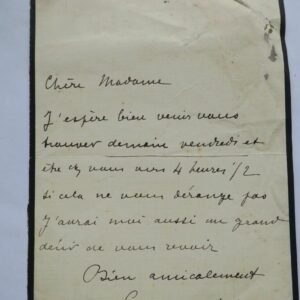 Chère Madame
J'espère bien venir vous
trouver demain vendredi et
être chez vous vers 4 heures 1/2
si cela ne vous dérange pas
J'aurai moi aussi un grand
désir de vous revoir
Bien amicalement